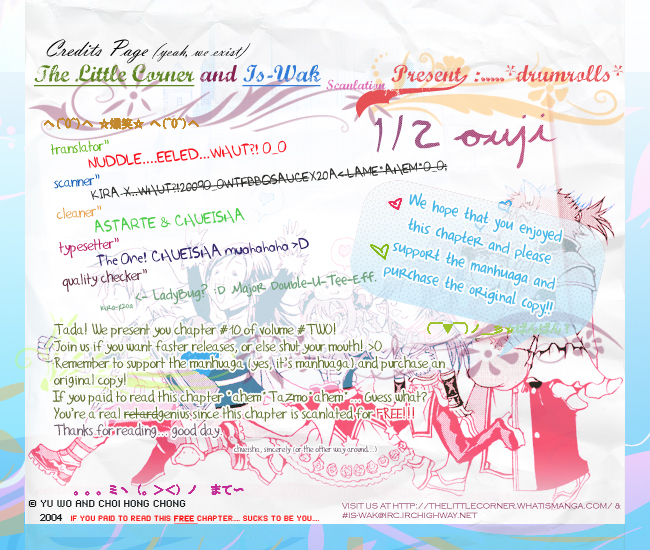 Credits Page (yeah, we exist)
The Little Corner and Is-Wak Scanlation Present :......*drumrolls*
1/2 ouji
translator"
NUDDLE....EELED...WHUT?! O_O
scanner"
cleaner"
ASTARTE & CHUEISHA
typesetter"
The One! CHUEISHA muahahaha >D
quality checker"
<- LadyBug? :D Major Double-U-Tee-Eff.
We hope that you enjoyed
this chapter and please
support the manhuaga and
purchase the original copy!!
Tada! We present you chapter #10 of volume #TWO!
Join us if you want faster releases, or else shut your mouth! >0
Remember to support the manhuaga (yes, it's manhuaga) and purchase an
original copy!
If you paid to read this chapter *ahem* Tazmo *ahem*... Guess what?
You're a real retard genius since this chapter is scanlated for FREE!!!
Thanks for reading... good day.
chueisha, sincerely (or the other way around...)
。。。ミヽ(。><)ノ まて～
© YU WO AND CHOI HONG CHONG
2004 IF YOU PAID TO READ THIS FREE CHAPTER... SUCKS TO BE YOU...
VISIT US AT HTTP://THELITTLECORNER.WHATISMANGA.COM/ &
#IS-WAK@IRC.IRCHIGHWAY.NET